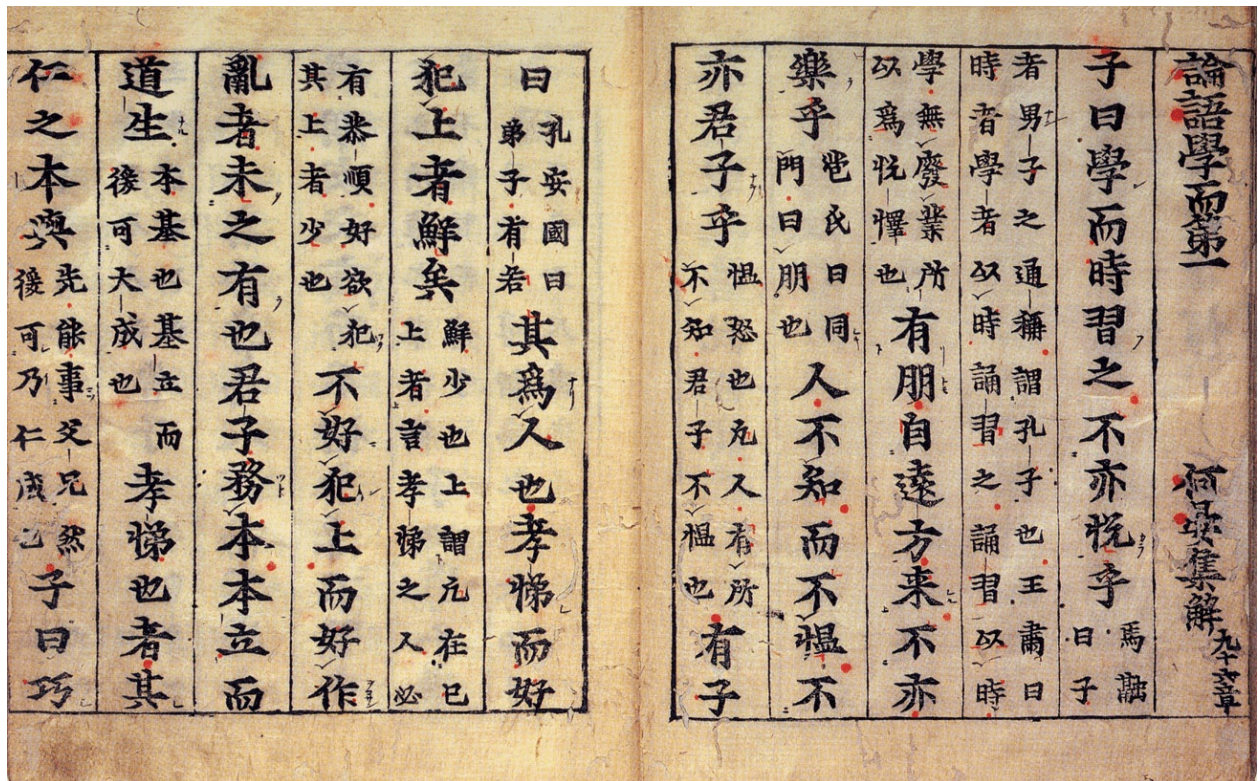 論語學而第一 何晏集解 凡十六章
子曰學而時習之不亦悅乎 馬融曰子
者男子之通稱謂孔子也王肅曰
時者學者以時誦習之誦習以時
學無廢業所以爲悅懌也 有朋自遠方来不亦
樂乎 苞氏曰同門曰朋也 人不知而不愠不
亦君子乎 愠怒也凡人有所不知君子不愠也 有子
曰 孔安國曰弟子有若 其爲人也孝悌而好
犯上者鮮矣 鮮少也上謂凡在已上者言孝悌之人必
有恭順好欲犯其上者少也 不好犯上而好作
亂者未之有也君子務本本立而
道生 本基也基立而後可大成也 孝悌也者其
仁之本與 先能事父兄然後可乃仁成已 子曰巧